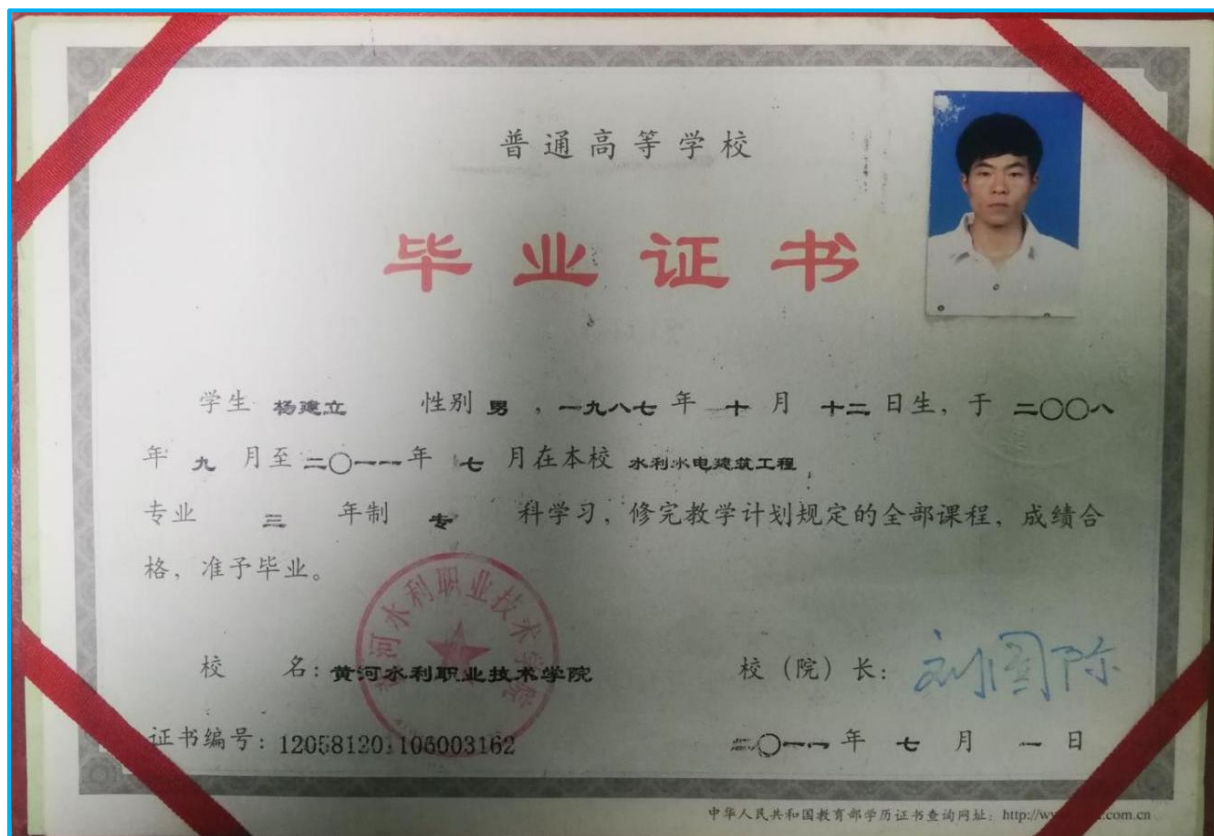 普通高等学校
毕业证书
学生 杨建立 性别 男 ，一九八七 年 十 月 十二 日生，于 二〇〇八
年 九 月至 二〇一一 年 七 月在本校 水利水电建筑工程
专业 三 年制 专 科学习，修完教学计划规定的全部课程，成绩合
格，准予毕业。
河水利职业技术学院
校 名：黄河水利职业技术学院
校（院）长：刘国际
证书编号：120581201106003162
二〇一一 年 七 月 一 日
中华人民共和国教育部学历证书查询网址：http://w .com.cn